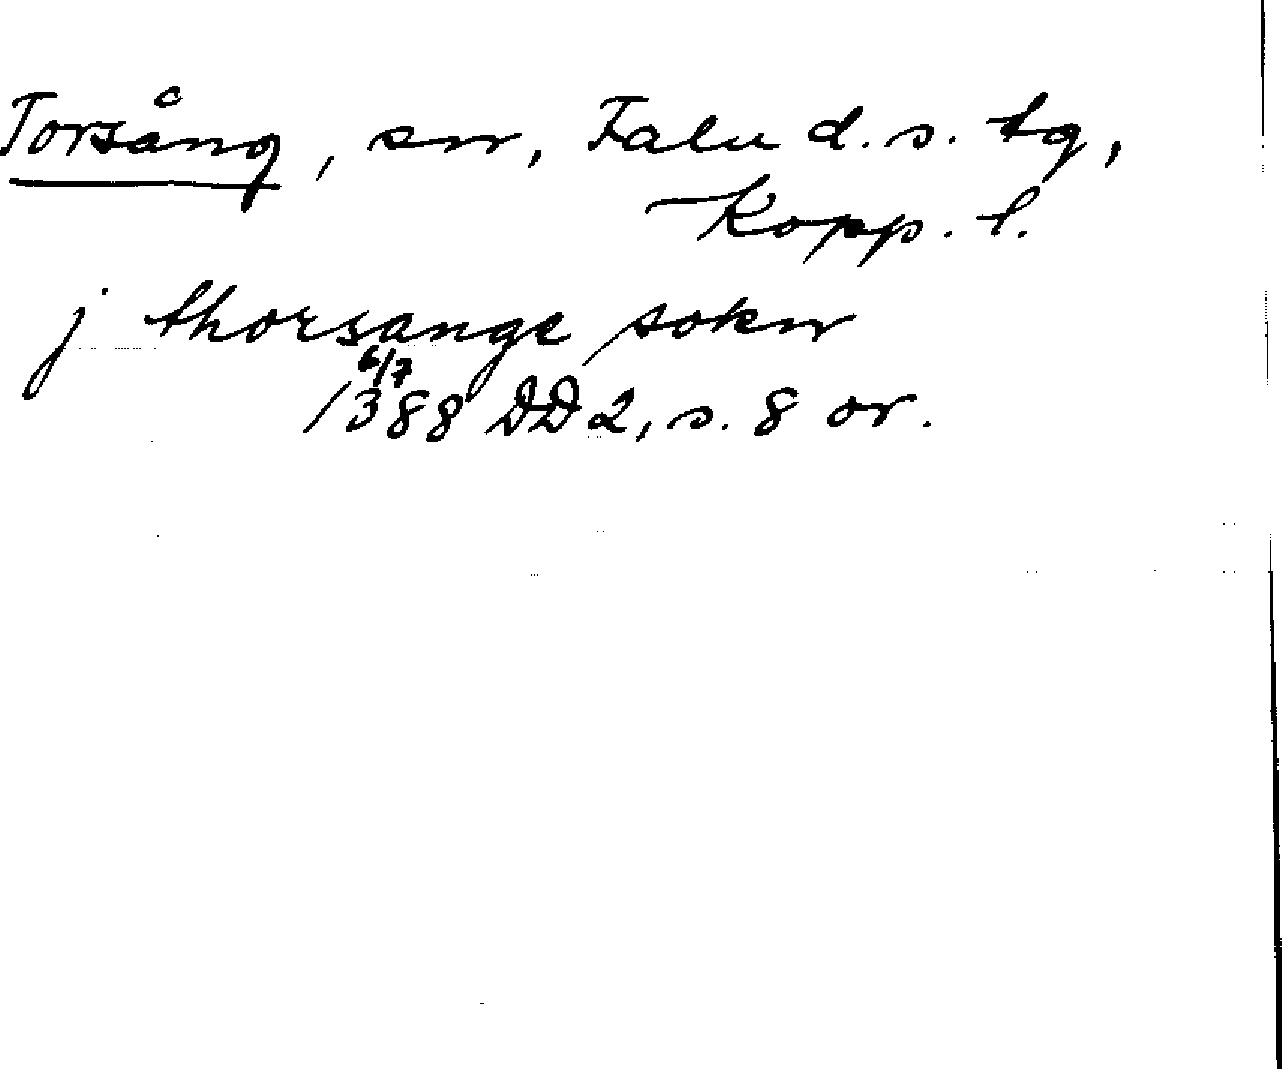 Torsång, sn, Falu d. s. tg,
Kopp. l.
j thorsange sokn
6/7
1388 DD 2, s. 8 or.